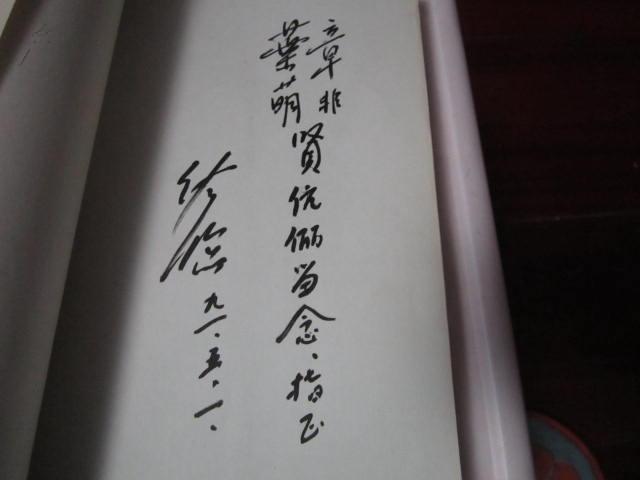 章非
葉萌
賢伉俪留念、指正
九一.五.一.